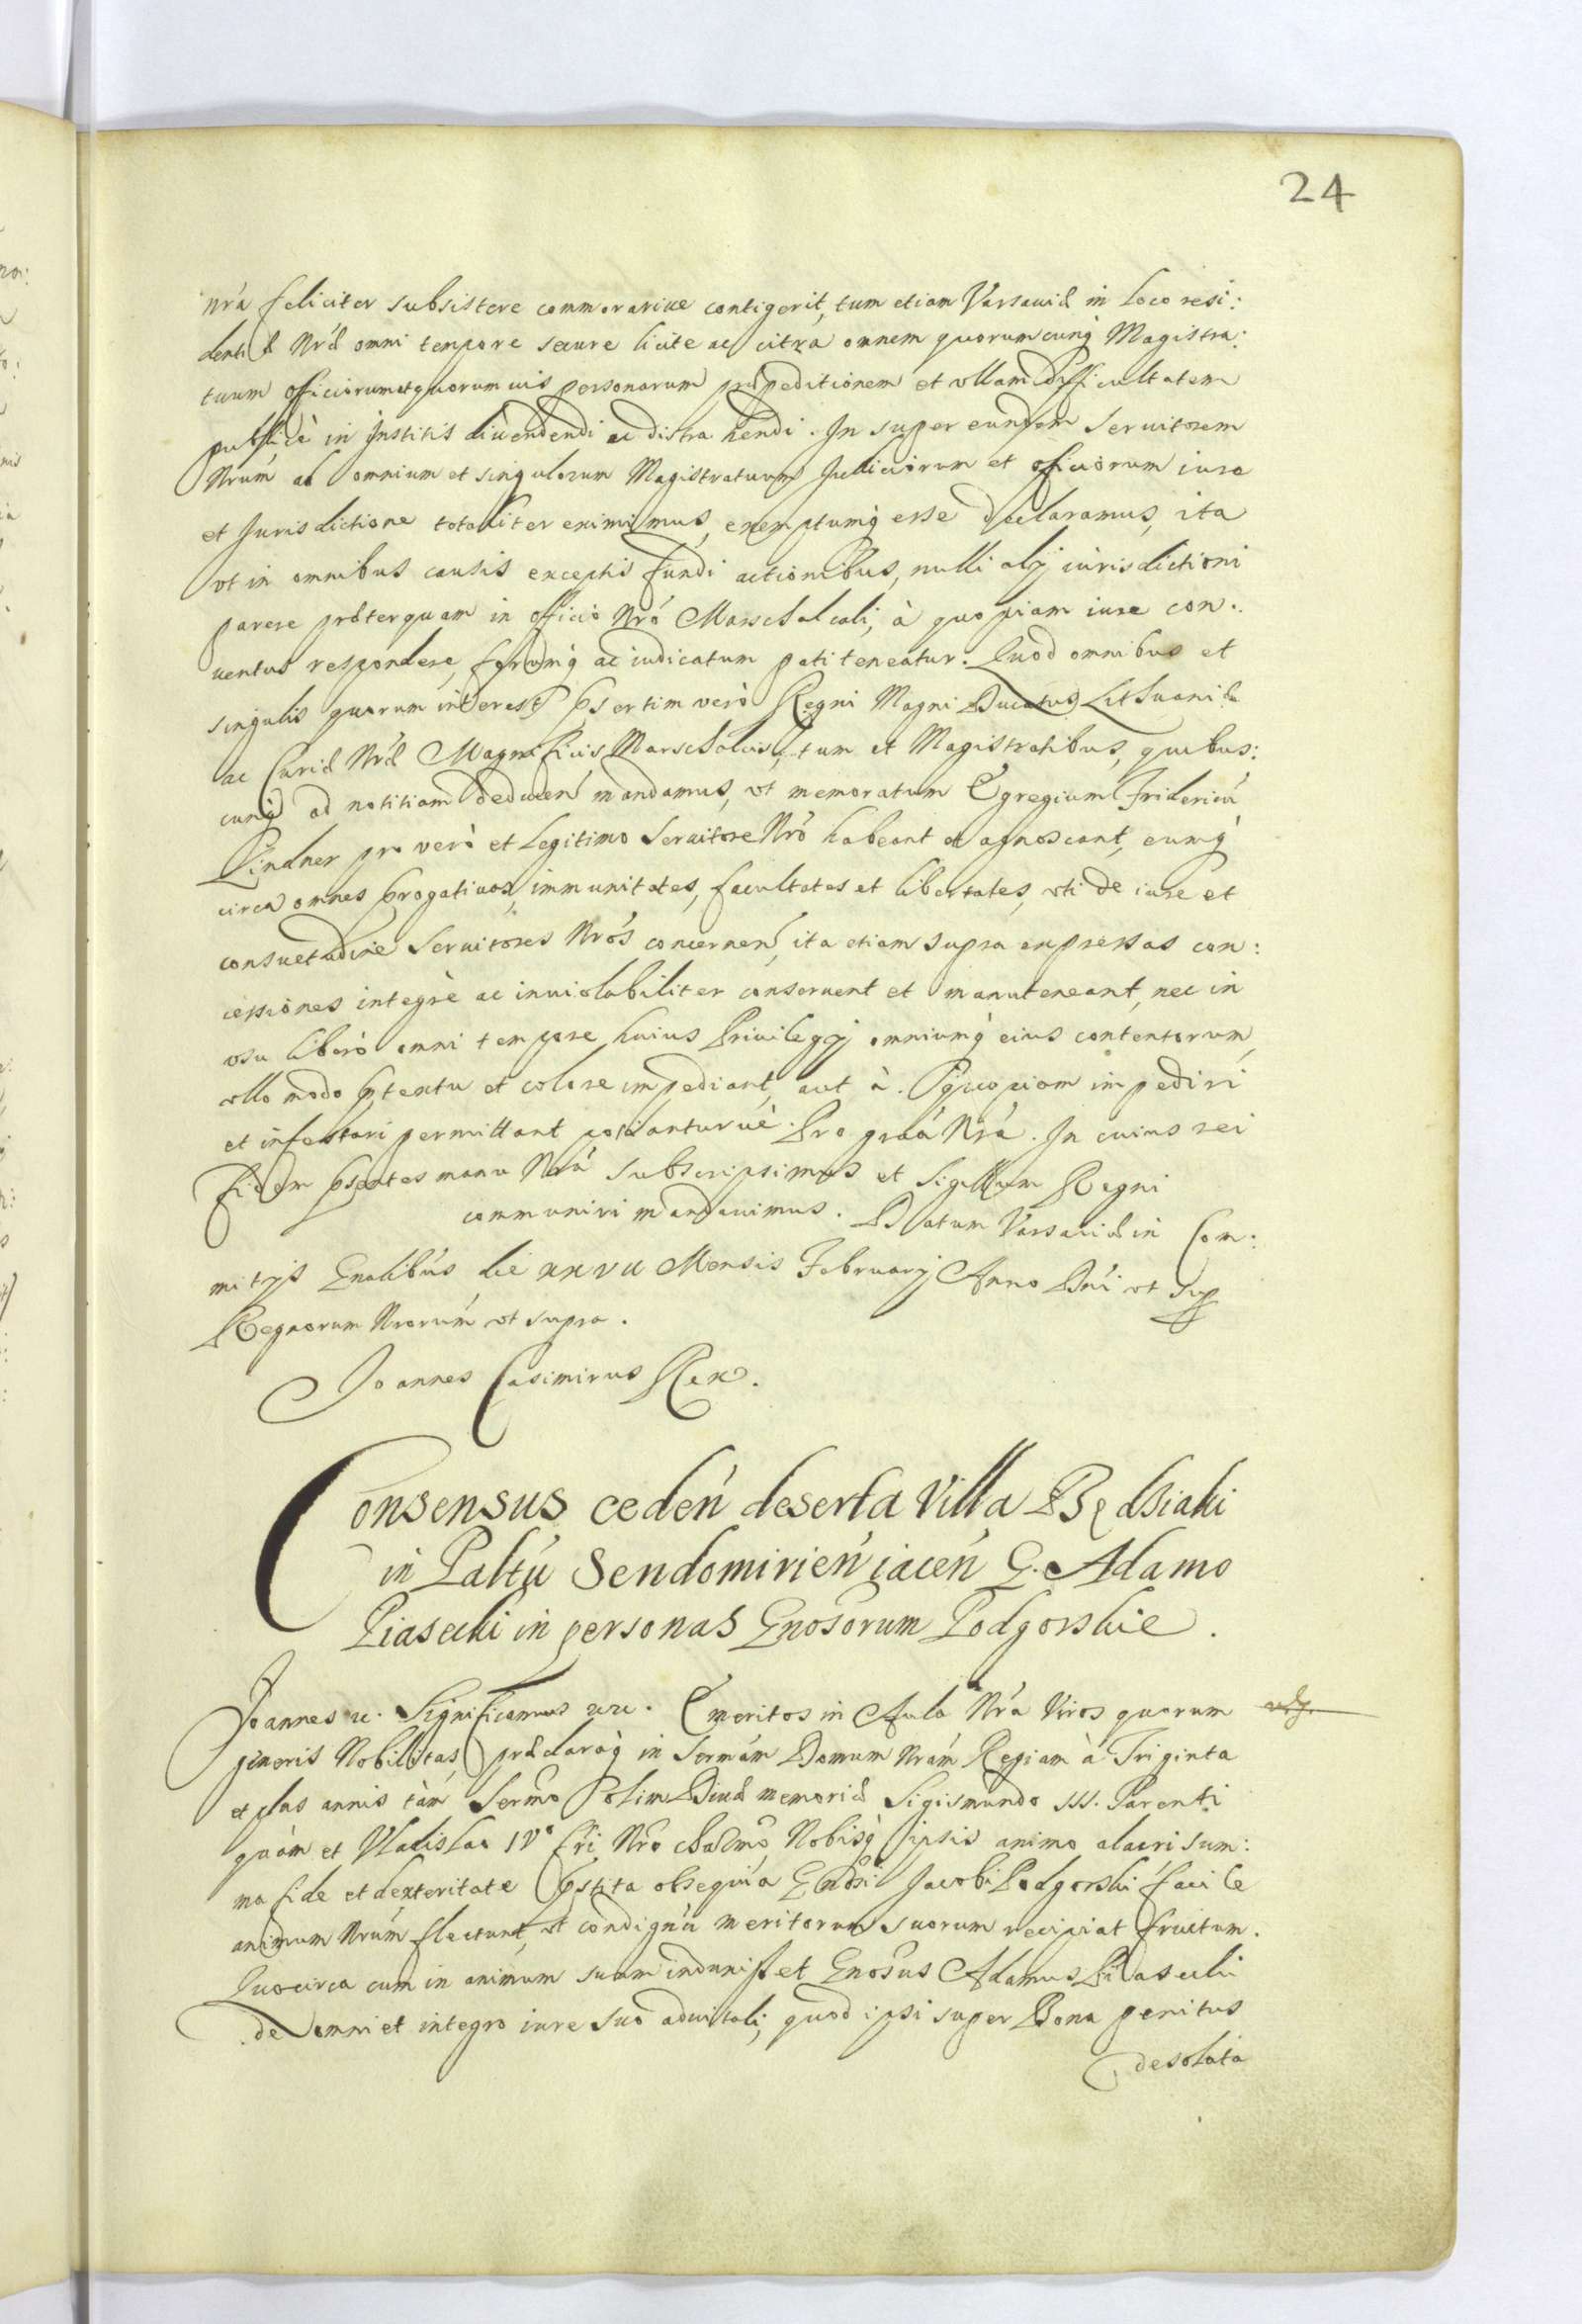 24
nr̃a feliciter subsistere commorariue contigerit, tum etiam Varsauiæ in Loco resi:
dentiæ Nr̃æ omni tempore secure licite ac citra omnem quorumcunq̀ Magistra:
tuum officiorumetquorumuis personarum præpeditionem et ullam difficultatem
publicè in Institis diuendendi ac distrahendi. In super eundem Seruitorem
Nrum̃ ab omnium et singulorum Magistratuum Judiciorum et officiorum iure
et Jurisdictione totaliter eximimus, exemptumq̀ esse declaramus, ita
vt in omnibus causis exceptis fundi actionibus, nulli alij iurisdictioni
parere præterquam in officio Nrõ Marschalcali, à quopiam iure con:
uentus respondere, forumq̀ ac iudicatum pati teneatur. Quod omnibus et
singulis quorum interest, p̃sertim verò Regni Magni Ducatus Lithuaniæ
ac Curiæ Nr̃æ Magnificis Marschalcis, tum et Magistratibus, quibus:
cunq̀ ad notitiam deducen̄ mandamus, vt memoratum Egregium Fridericũ
Lindner pro verò et Legitimo Seruitore Nrõ habeant et agnoscant, eumq̀
circa omnes p̃rogatiuas, immunitates, facultates et libertates, vti de iure et
consuetudine Seruitores Nrõs concernen̄, ita etiam supra expressas con:
cessiones integrè ac inuiolabiliter conseruent et manuteneant, nec in
vsu liberò omni tempore huius Priuilegij omniumq̀ eius contentorum,
ullo modo p̃textu et colore impediant, aut à quopiam impediri
et infestari permittant patianturuè. Pro gr̃aâ Nrã. In cuius rei
fidem p̃sentes manu Nrã subscripsimus et Sigillum Regni
communiri mandauimus. Datum Varsauiæ in Com:
mitijs Gnãlibus die xxvii Mensis February Anno Dnĩ vt sup̱
Regnorum Nrorum̃ vt supra.
Joannes Casimirus Rex.
Consensus ceden̄ deserta Villa Bedsiaki
in Paltũ Sendomirien̄ iacen̄ G. Adamo
Piasecki in personas Gnosorum Podgorskie.
Joannes &c. Significamus &&c. Emeritos in Aula Nrã Viros quorum
generis Nobilitas, præclaraq̀ in Sermãm Domum Nrãm Regiam à Triginta
et plus annis tàm Sermõ olim Diuæ memoriæ Sigismundo III. Parenti
quàm et Vladislao IVo Fr̃i Nrõ chasmõ, Nobisq̀ ipsis animo alacri sum:
ma fide et dexteritate p̃stita obsequia Gnõsi Jacobi Podgorski facile
animum Nrum̃ flectunt, vt condignũ meritorum suorum recipiat fructum.
Quocirca cum in animum suum induxisset Gnõsus Adamus Piasecki
de omni et integro iure suo aduitali, quod ipsi super Bona penitus
desolata